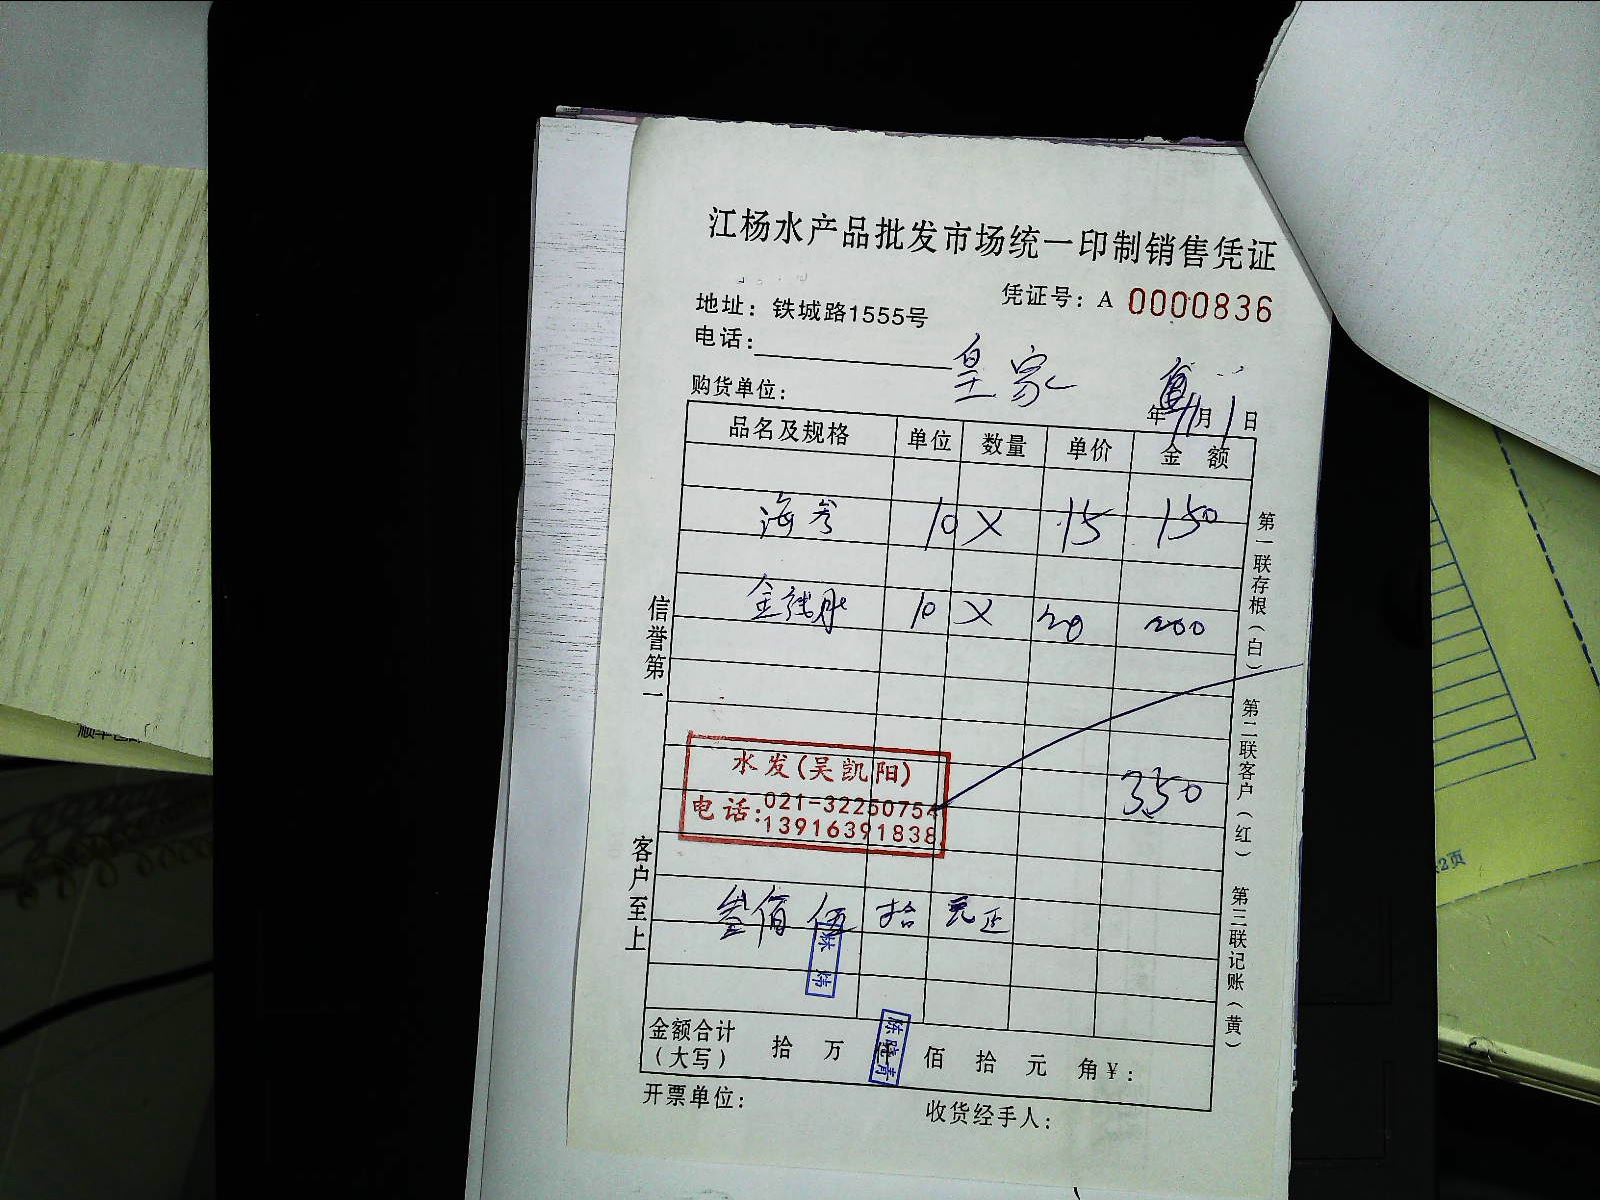 江杨水产品批发市场统一印制销售凭证
凭证号：A 0000836
地址：铁城路1555号
电话：
皇家
购货单位：
年11月1日
品名及规格 单位 数量 单价 金 额
海参 10 X 15 150
金钱肚 10 X 20 200
水发(吴凯阳)
电话：021-32250754
13916391838
350
叁佰伍拾元正
陈晓青
金额合计（大写） 拾 万 佰 拾 元 角￥：
开票单位：
收货经手人：
信誉第一
客户至上
第一联存根（白） 第二联客户（红） 第三联记账（黄）
2页